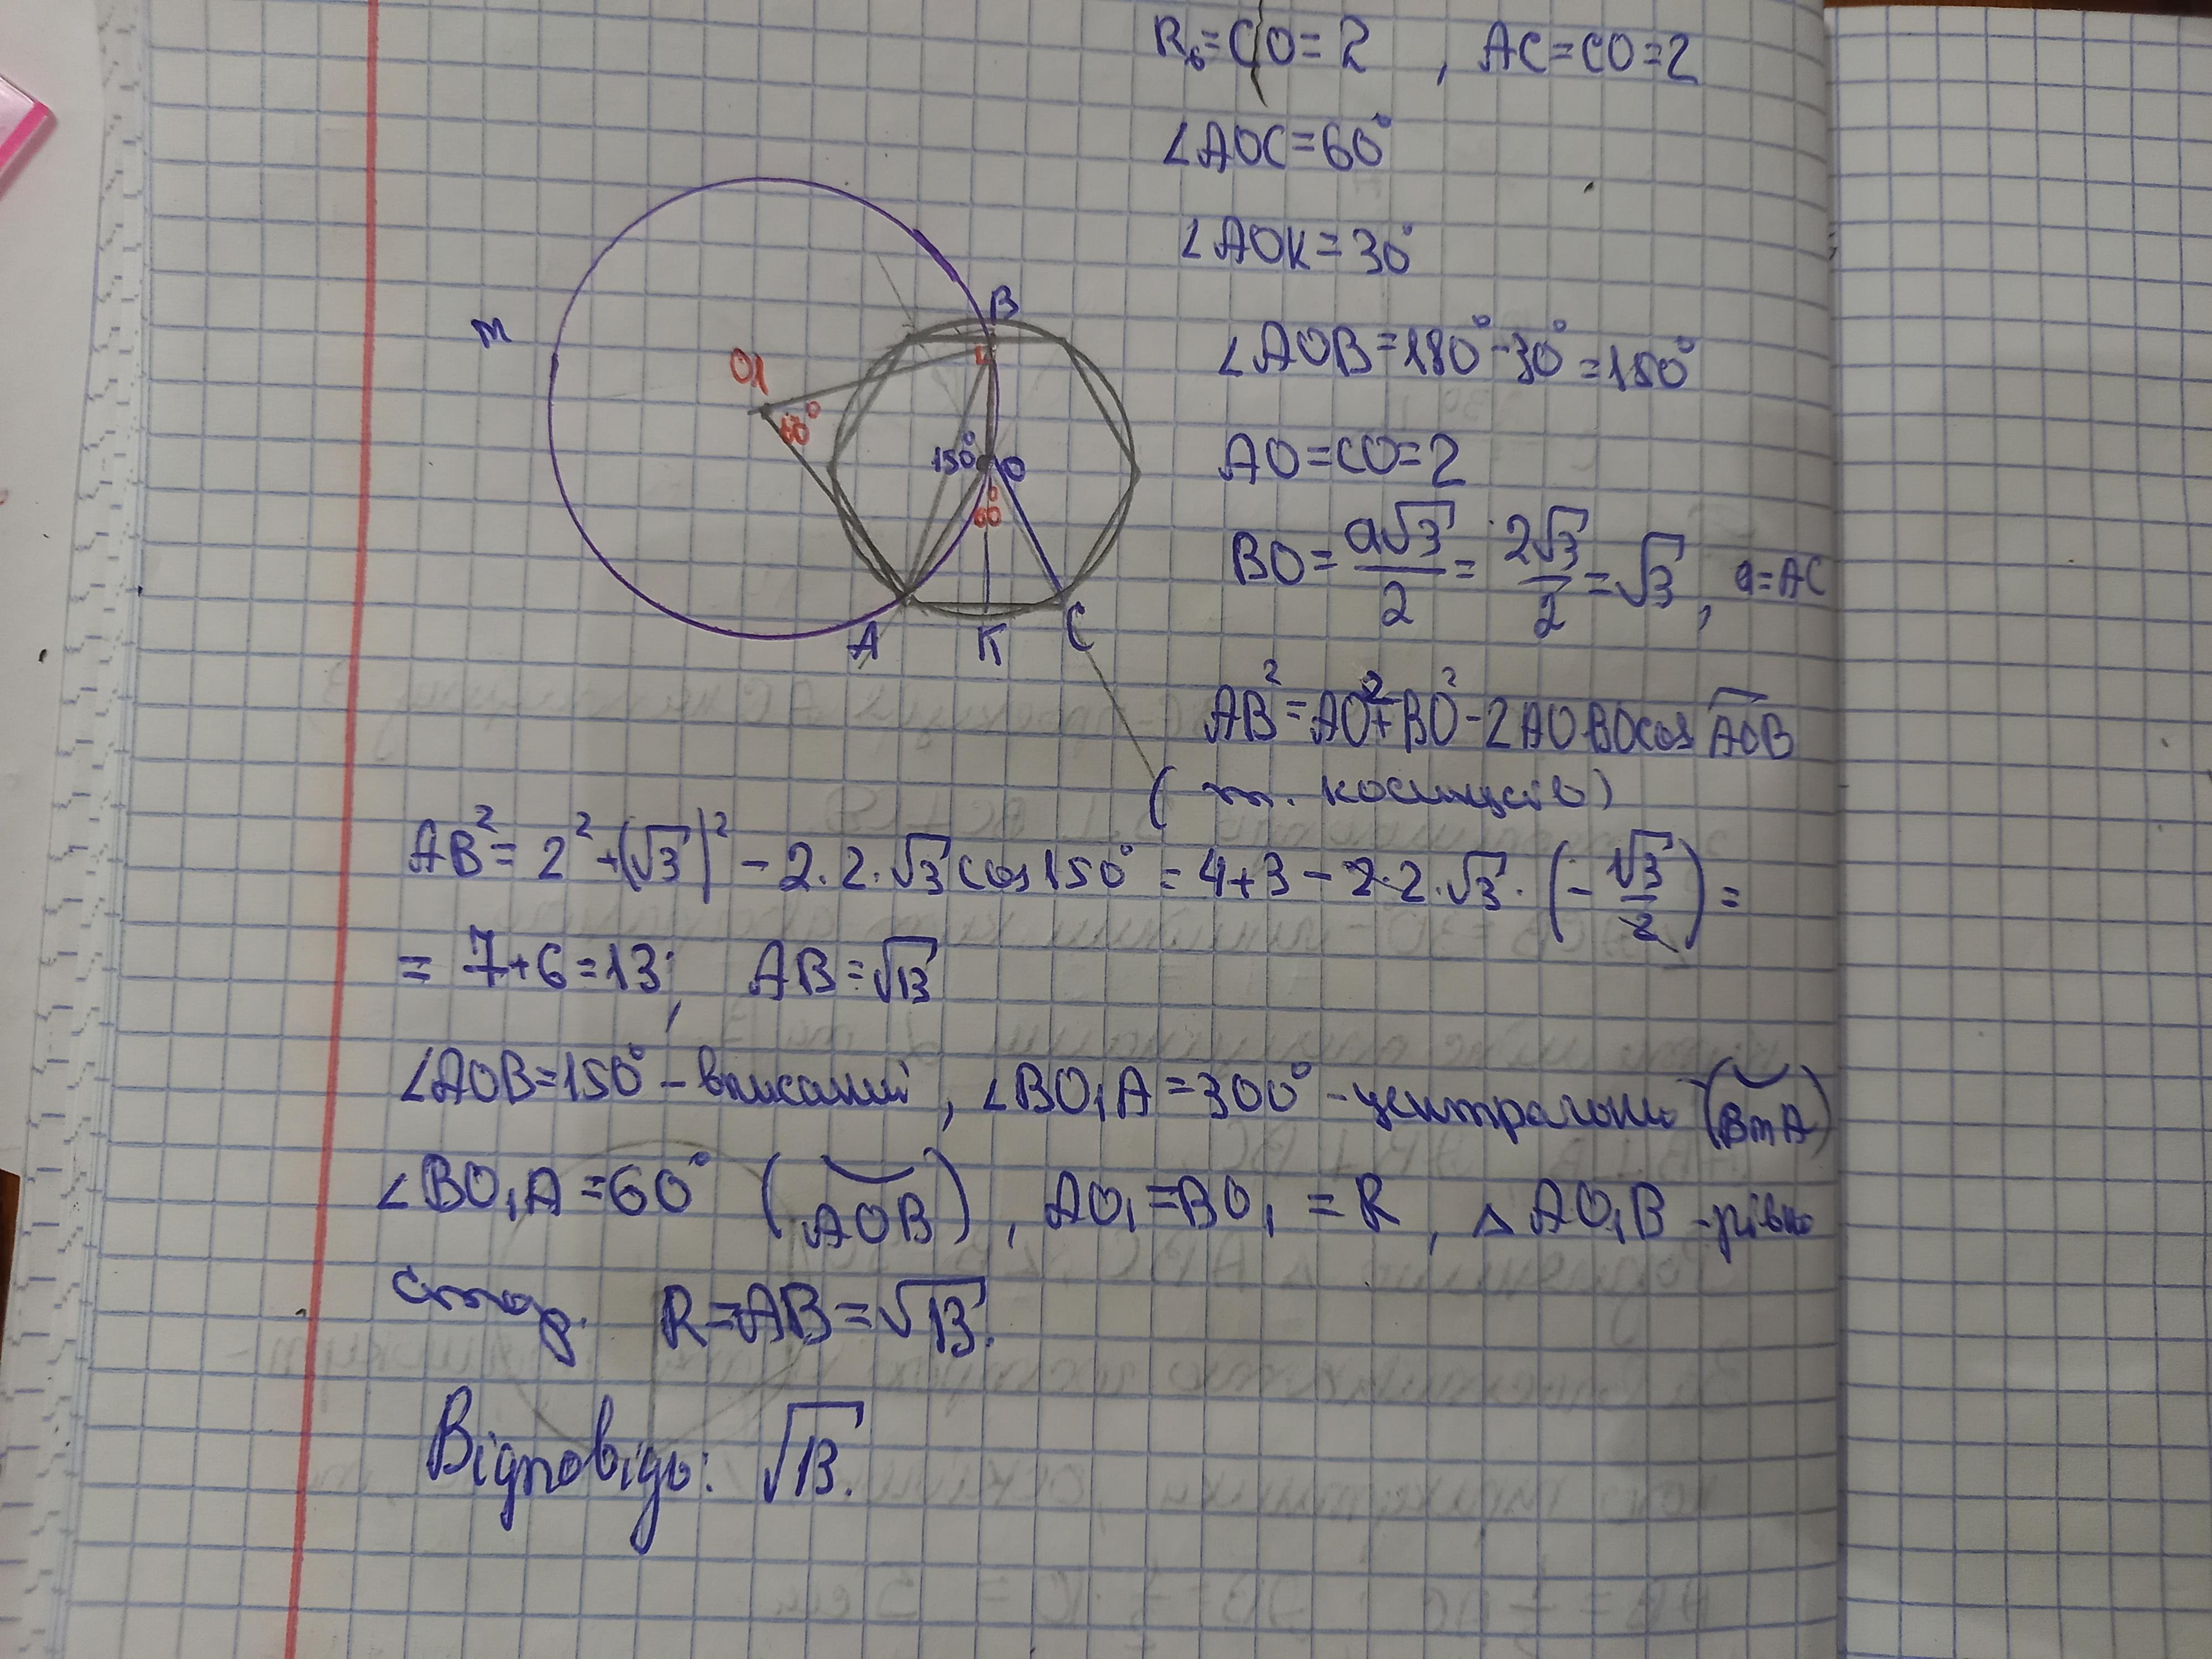 R₆=CO=2 , AC=CO=2
∠AOC=60°
∠AOK=30°
∠AOB=180°-30°=150°
AO=CO=2
BO=a√3/2=2√3/2=√3, a=AC
AB²=AO²+BO²-2AO·BOcos AOB
(т. косинусів)
m
B
O1
60°
150°
O
60°
A
K
C
AB²=2²+(√3)²-2·2·√3cos150°=4+3-2·2·√3·(-√3/2)=
=7+6=13; AB=√13
∠AOB=150°-вписаний, ∠BO₁A=300°-центральний (BmA)
∠BO₁A=60° (AOB), AO₁=BO₁=R, △AO₁B-рівно
стор. R=AB=√13.
Відповідь: √13.